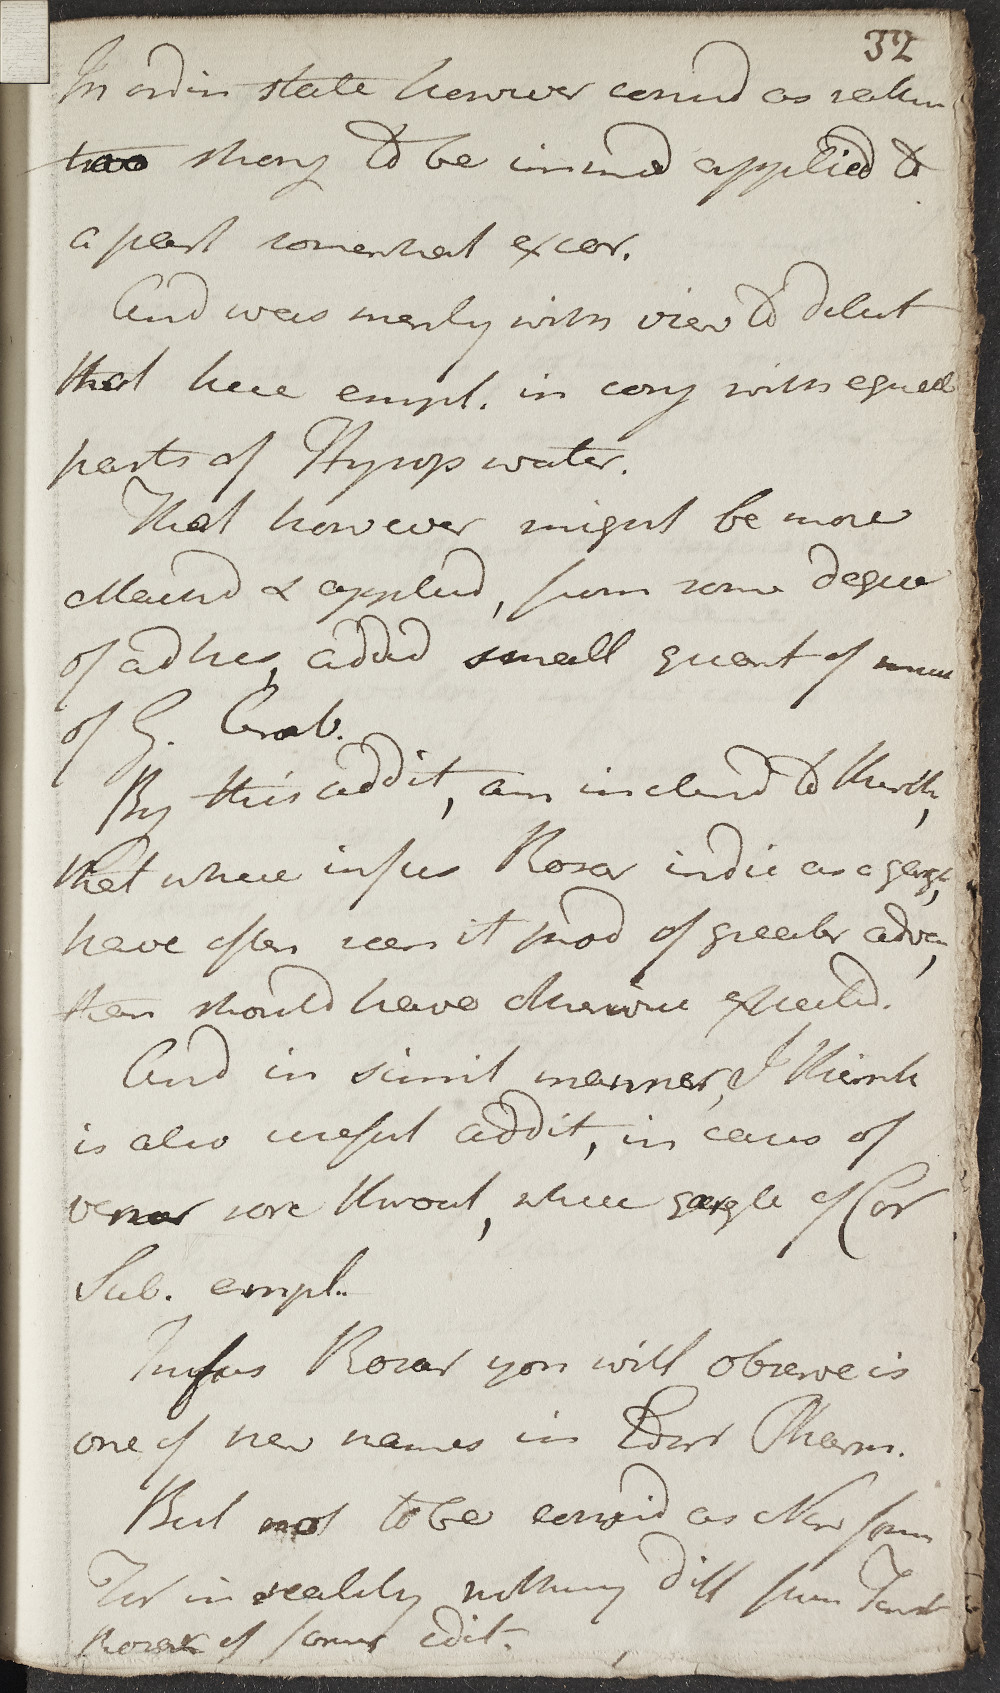 32
In ordin state however consid as rather
too strong to be immed applied to
a part somewhat excor.
And was merly with view to dilut
that here empl. in conj with equall
parts of Hysop water.
That however might be more
attachd & applied, from some degree
of adhes, added small quant of muc
of G. Arab.
By this addit, am inclend to think,
that where infus Rosar indic as a garg,
have often seen it prod of greater adva,
then should have otherwise expected.
And in simil manner, I think
is also useful addit, in cases of
vener sore throat, where gargle of Cor
Sub. empl.
Infus Rosar you will observe is
one of new names in Edinr Pharm.
But not to be consid as New form
For in reality nothing diff from Tinct
Rosar of former edit.